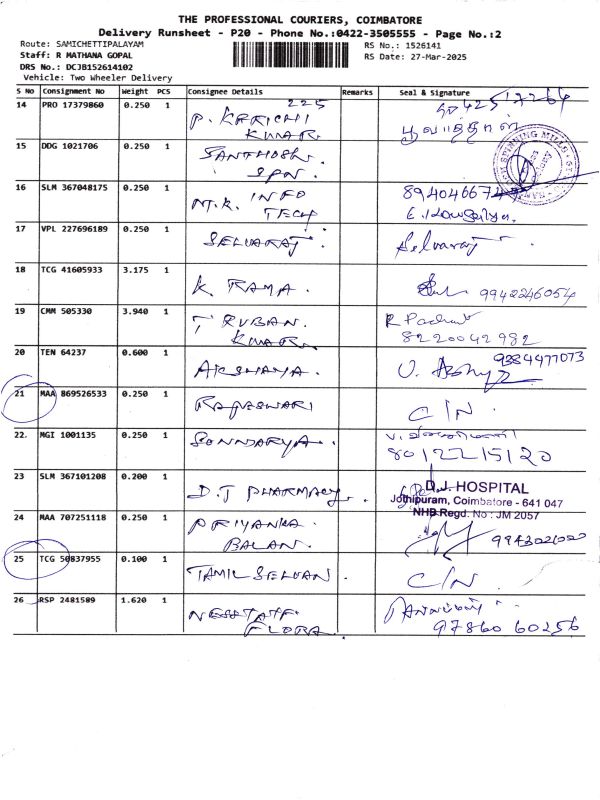 THE PROFESSIONAL COURIERS, COIMBATORE
Delivery Runsheet - P20 - Phone No.:0422-3505555 - Page No.:2
Route: SAMICHETTIPALAYAM
RS No.: 1526141
Staff: R MATHANA GOPAL
RS Date: 27-Mar-2025
DRS No.: DCJB152614102
Vehicle: Two Wheeler Delivery
S No Consignment No Weight PCS Consignee Details Remarks Seal & Signature
14 PRO 17379860 0.250 1 225
P. KARICHI
KUMAR
15 DDG 1021706 0.250 1 SANTHOSH.
SPN.
SPINNING MILLS
16 SLM 367048175 0.250 1 M.R. INFO
TECH
17 VPL 227696189 0.250 1 SELVARAJ. Selvaraj
18 TCG 41605933 3.175 1 K. RAMA. 9942246054
19 CMM 505330 3.940 1 T RUBAN.
KUMAR.
8220042982
20 TEN 64237 0.600 1 AKSHAYA. 9384477073
21 MAA 869526533 0.250 1 RAJESWARI C/N.
22. MGI 1001135 0.250 1 SONNDARYA..
8012215120
23 SLM 367101208 0.200 1 D.J PHARMACY.
D.J. HOSPITAL
Jothipuram, Coimbatore - 641 047
NHB Regd. No : JM 2057
24 MAA 707251118 0.250 1 PRIYANKA.
BALAN.
25 TCG 50837955 0.100 1 TAMIL SELVAN. C/N
26 RSP 2481589 1.620 1
FLORA.
97860 60256